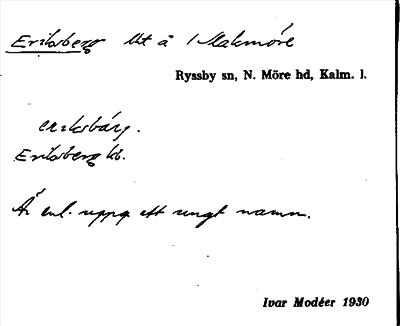 Eriksberg lht å 1 Malmöre
Ryssby sn, N. Möre hd, Kalm. l.
eriksbärj.
Eriksberg kb.
Är enl. uppg. ett ungt namn.
Ivar Modéer 1930